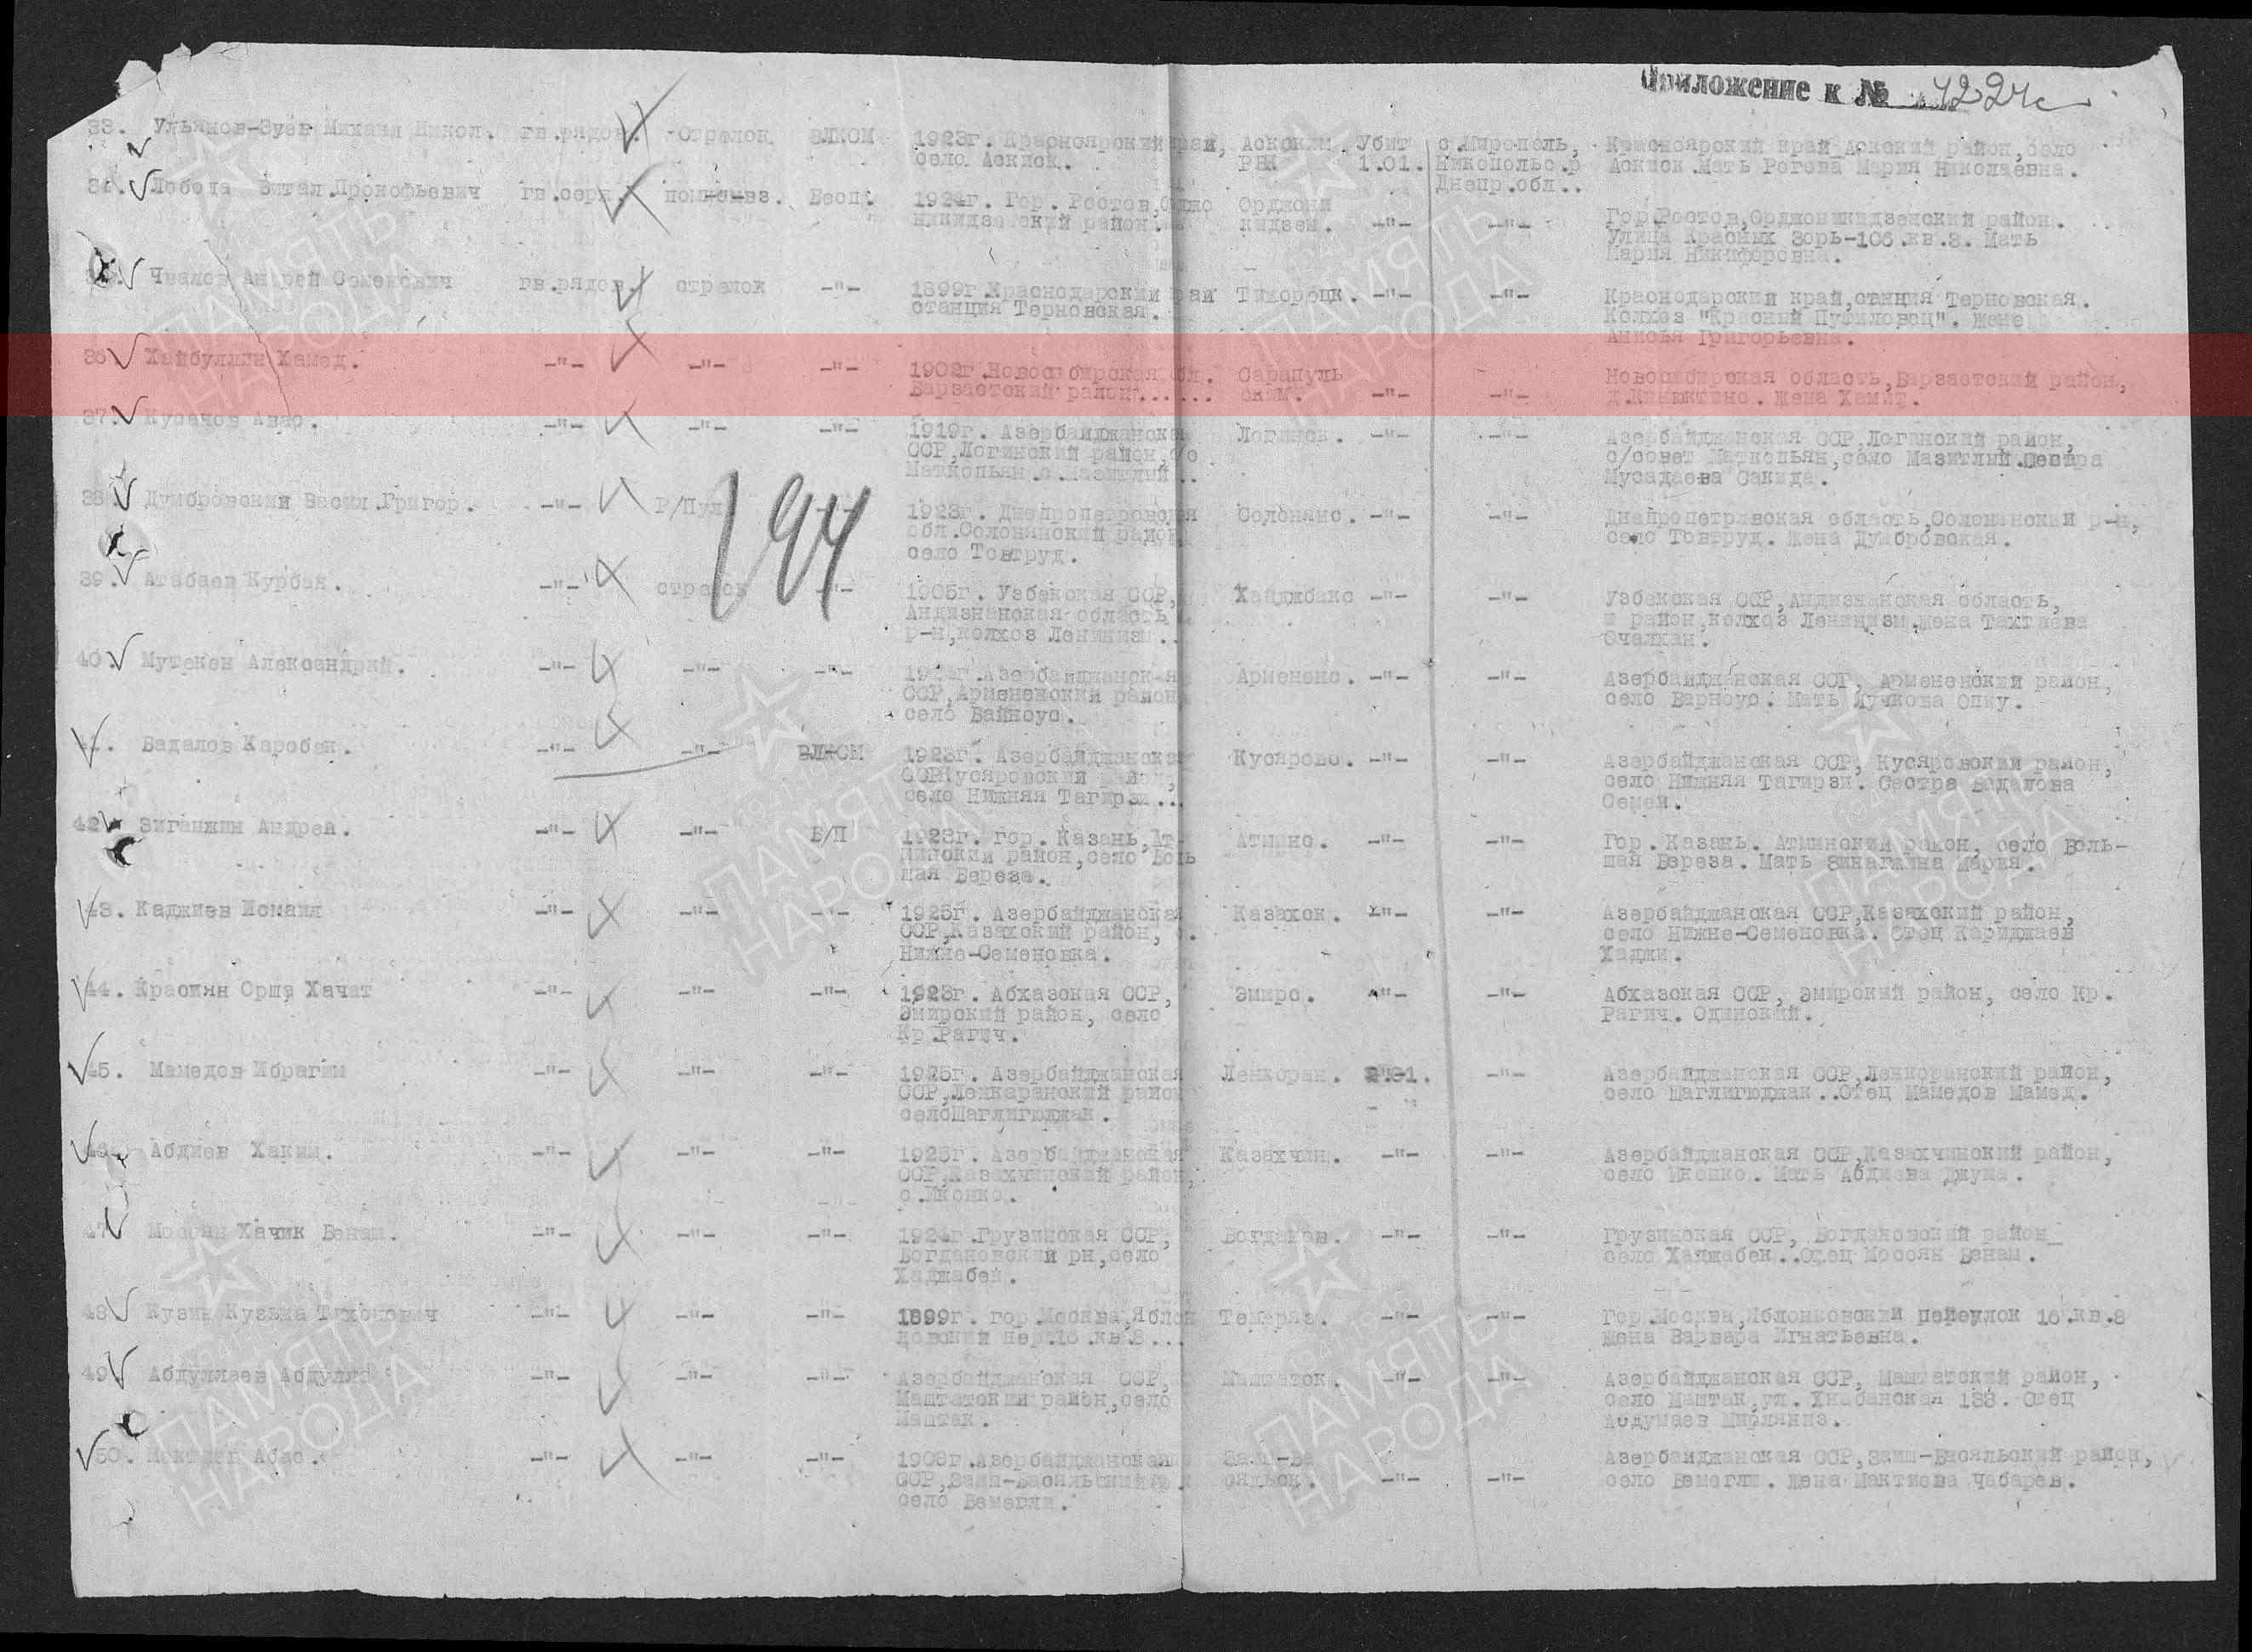 Приложение к № 4224с
33. Ульянов-Зуев Михаил Никол. гв.рядов. стрелок ВЛКСМ 1923г. Красноярский край, Аскским. Убит с.Мирополь, Красноярский край Аскский район, село
село Аскиск.. РВК 1.01. Никопольс.р Аскиск.Мать Рогова Мария Николаевна.
Днепр.обл..
34. Лобода Витал.Прокофьевич гв.серж. помкомвз. Бесп. 1924г. Гор. Ростов,Орджо Орджони
никидзевский район. кидзем. -"- -"- Гор.Ростов,Орджоникидзевский район.
Улица Красных Зорь-106.кв.3. Мать
Мария Никифоровна.
35. Чвалов Андрей Семенович гв.рядов. стрелок -"- 1899г.Краснодарский край Тихорецк. -"- -"- Краснодарский край,станция Терновская.
станция Терновская. Колхоз "Красный Путиловец". Жена
Анисья Григорьевна.
36. Хайбуллин Хамед. -"- -"- -"- 1902г.Новосибирская обл. Сарапуль Новосибирская область,Барзасский район,
Барзасский район...... ским. -"- -"- Жена Хамит.
37. Кусачов Авас. -"- -"- -"- 1919г. Азербайджанская Логинск. -"- -"- Азербайджанская ССР Логинский район,
ССР,Логинский район,с/с с/совет Маткопьян,село Мазитлый.Сестра
Маткопьян с.Мазитлый.. Мусадаева Сакида.
38. Думбровский Васил.Григор. -"- Р/Пул 1923г. Днепропетровская Солонянс. -"- -"- Днепропетровская область,Солонянский р-н,
обл.Солонянский район село Товтруд. Жена Думбровская.
село Товтруд.
39. Атабаев Курбан. -"- стрелок -"- 1905г. Узбекская ССР, Хаджибакс -"- -"- Узбекская ССР,Андижанская область,
Андижанская область район,колхоз Ленинизм.Жена Тахтаева
р-н,колхоз Ленинизм.. Очалхан.
40. Мутекен Александрий. -"- -"- -"- Азербайджанская Армененс. -"- -"- Азербайджанская ССР, Армененский район,
ССР,Армененский район, село Варноус. Мать Лучкова Опку.
село Вайноус.
41. Вадалов Каробек. -"- -"- ВЛКСМ 1923г. Азербайджанская Кусярово. -"- -"- Азербайджанская ССР, Кусяровский район,
ССР Кусяровский район, село Нижняя Тагирзи. Сестра Вадалова
село Нижняя Тагирзи... Семей.
42. Зиганжин Андрей. -"- -"- Б/П 1923г. гор. Казань,Ат- Атминс. -"- -"- Гор. Казань. Атминский район, село Боль-
минский район,село Боль шая Береза. Мать Зинагжина Мария.
шая Береза.
43. Каджиев Исмаил -"- -"- -"- 1925г. Азербайджанская Казахск. -"- -"- Азербайджанская ССР,Казахский район,
ССР,Казахский район, с. село Нижне-Семеновка. Отец Кариджаев
Нижне-Семеновка. Хаджи.
44. Красиян Орше Хачат -"- -"- -"- 1923г. Абхазская ССР, Эмирс. -"- -"- Абхазская ССР, Эмирский район, село Кр.
Эмирский район, село Рагич. Одинокий.
Кр.Рагич.
45. Мамедов Ибрагим -"- -"- -"- 1925г. Азербайджанская Ленкоран. 2.01. -"- Азербайджанская ССР,Ленкоранский район,
ССР,Ленкаранский район село Шаглигюджак..Отец Мамедов Мамед.
селоШаглигюджак.
46. Абдиев Хаким. -"- -"- -"- 1925г. Азербайджанская Казахчин. -"- -"- Азербайджанская ССР,Казахчинский район,
ССР,Казахчинский район, село Иконко. Мать Абдиева Джума.
с.Иконко.
47. Мосоян Хачик Венам. -"- -"- -"- 1924г.Грузинская ССР, Богданов. -"- -"- Грузинская ССР, Богдановский район
Богдановский рн,село село Хаджабек..Отец Мосоян Венам.
Хаджабей.
48. Кузин Кузьма Тихонович -"- -"- -"- 1899г. гор.Москва,Яблон Темеряз. -"- -"- Гор.Москва,Яблонковский пейеулок 16.кв.8
новский пер.16.кв.8... Жена Варвара Игнатьевна.
49. Абдуллаев Абдулла -"- -"- -"- Азербайджанская ССР, Маштагск. -"- -"- Азербайджанская ССР, Маштагский район,
Маштагский район,село село Маштак,ул. Хнабанская 133. Отец
Маштак. Абдумаев Мирлянис.
50. Мактиев Абас. -"- -"- -"- 1908г.Азербайджанская Заип-Ва Азербайджанская ССР,Заип-Васяльский район,
ССР,Заип-Васяльский сяльск. -"- -"- село Бемегли. Жена Мактиева Чабарев.
село Бемегли.
194
ПАМЯТЬ
НАРОДА